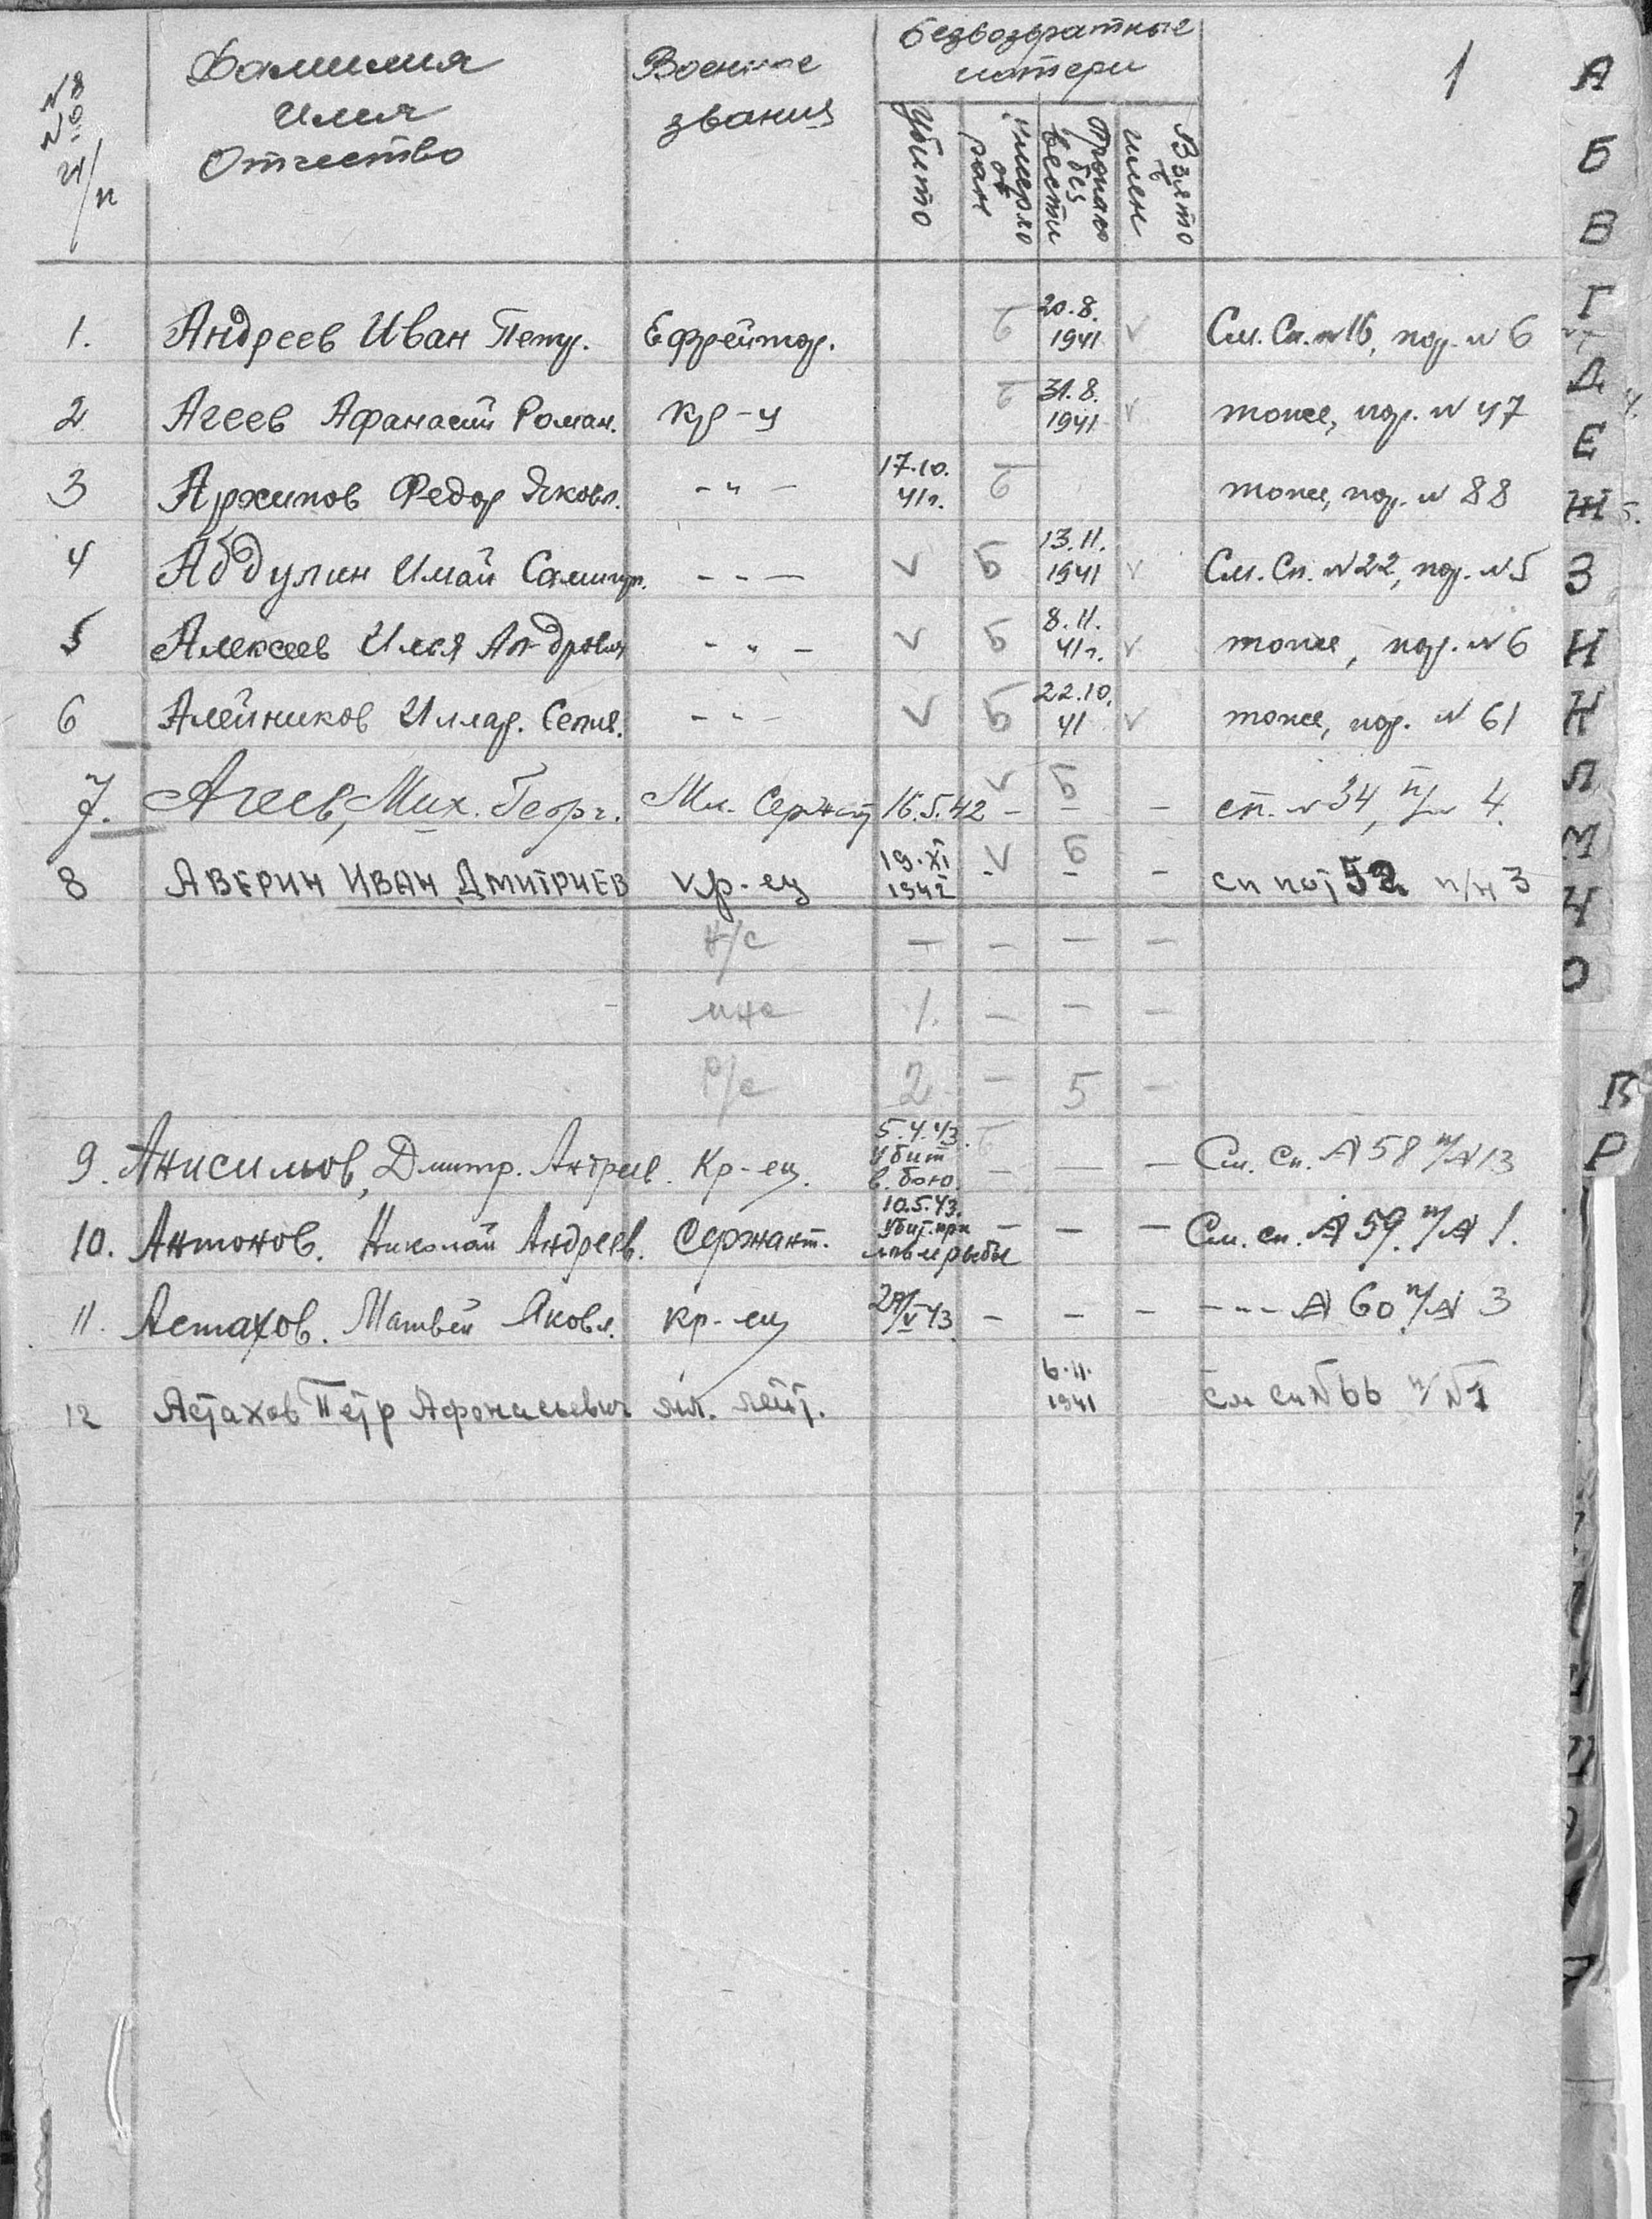 №№ п/п
Фамилия Имя Отчество
Военное звания
Безвозвратные потери
Убито
Умерло от ран
Пропало без вести
Взято в плен
1
1. Андреев Иван Петр. Ефрейтор. 20.8. 1941 v См. Сп. №16, пор. №6
2 Агеев Афанасий Роман. кр-ц 31.8. 1941 v тоже, пор. № 47
3 Архипов Федор Яковл. -"- 17.10. 41г. тоже, пор. № 88
4 Абдулин Имай -"- v Б 13.11. 1941 v См. Сп. №22, пор. №5
5 Алексеев Илья -"- v Б 8.11. 41г. v тоже, пор. №6
6 Алейников Иллар. -"- v Б 22.10. 41 v тоже, пор. № 61
7. Агеев, Мих. Георг. Мл. Сержант 16.5.42 v – Б – – сп. №34, п/№ 4.
8 АВЕРИН ИВАН ДМИТРИЕВ кр-ец 19.XI 1942 v – Б – – сп пот 52 п/н 3
н/с – – – –
мнс 1. – – –
р/с 2 – 5 –
9. Анисимов, Дмитр. Кр-ец. 5.4.43. Убит в бою. – – – См. Сп. № 58 п/№ 13
10. Антонов. Николай Андреев. Сержант. 10.5.43. Убит при ловле рыбы – – – См. сп. № 59. п/№ 1.
11. Астахов. Матвей Яковл. кр-ец 43 – – – -"- № 60 п/№ 3
12 Астахов Петр Афонасьевич мл. лейт. 6.11. 1941 См сп №66 п/№1
А
Б
В
Г
Д
Е
Ж
З
И
К
Л
М
Н
О
Р